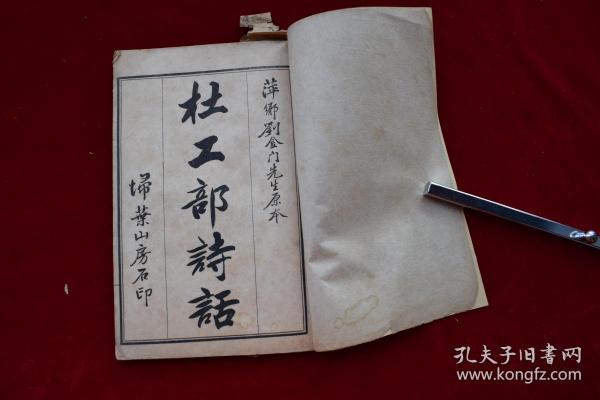 萍鄉劉金门先生原本
杜工部詩話
埽葉山房石印
孔夫子旧书网
www.kongfz.com